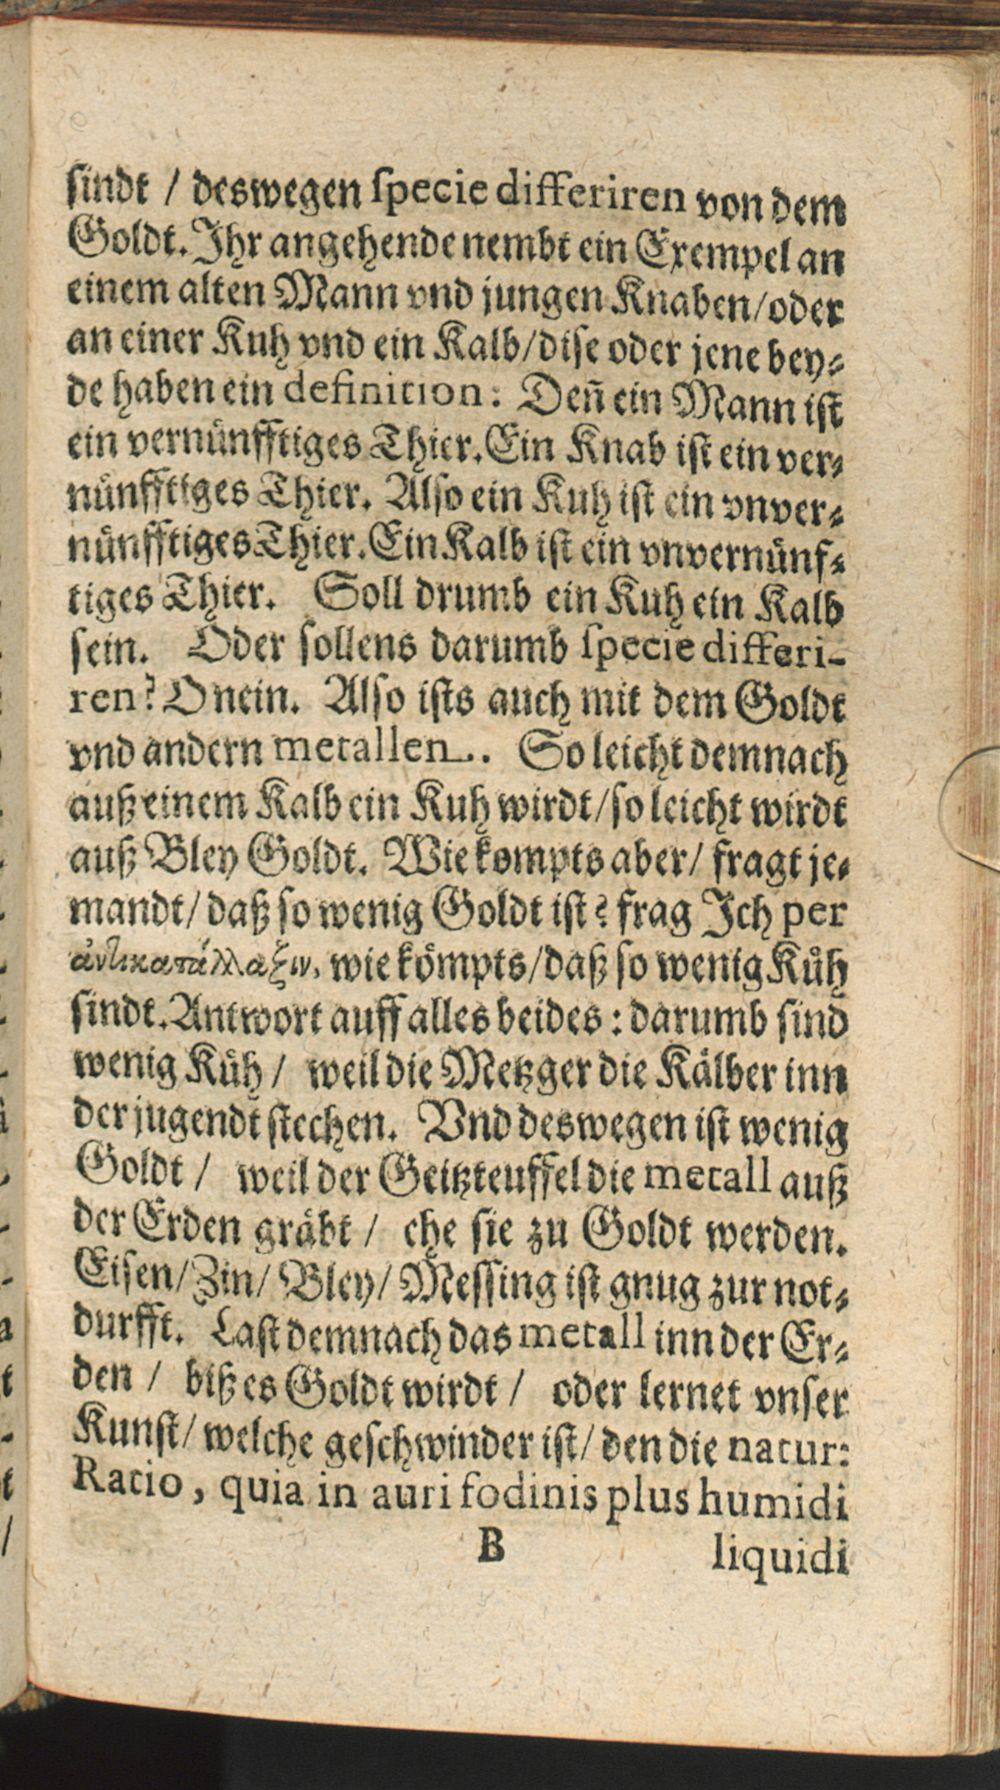 sindt / deswegen specie differiren von dem
Goldt. Ihr angehende nembt ein Exempel an
einem alten Mann vnd jungen Knaben/oder
an einer Kuh vnd ein Kalb/dise oder jene bey-
de haben ein definition: Deñ ein Mann ist
ein vernünfftiges Thier. Ein Knab ist ein ver-
nünfftiges Thier. Also ein Kuh ist ein vnver-
nünfftiges Thier. Ein Kalb ist ein vnvernünf-
tiges Thier. Soll drumb ein Kuh ein Kalb
sein. Oder sollens darumb specie differi-
ren? O nein. Also ists auch mit dem Goldt
vnd andern metallen.. So leicht demnach
auß einem Kalb ein Kuh wirdt/so leicht wirdt
auß Bley Goldt. Wie kompts aber/ fragt je-
mandt/ daß so wenig Goldt ist? frag Ich per
ἀντικατάλλαξιν, wie kömpts/daß so wenig Küh
sindt. Antwort auff alles beides: darumb sind
wenig Küh / weil die Metzger die Kälber inn
der jugendt stechen. Vnd deswegen ist wenig
Goldt / weil der Geitzteuffel die metall auß
der Erden gräbt / ehe sie zu Goldt werden.
Eisen/Zin/ Bley/ Messing ist gnug zur not-
durfft. Last demnach das metall inn der Er-
den / biß es Goldt wirdt / oder lernet vnser
Kunst/ welche geschwinder ist/ den die natur:
Ratio, quia in auri fodinis plus humidi
B liquidi